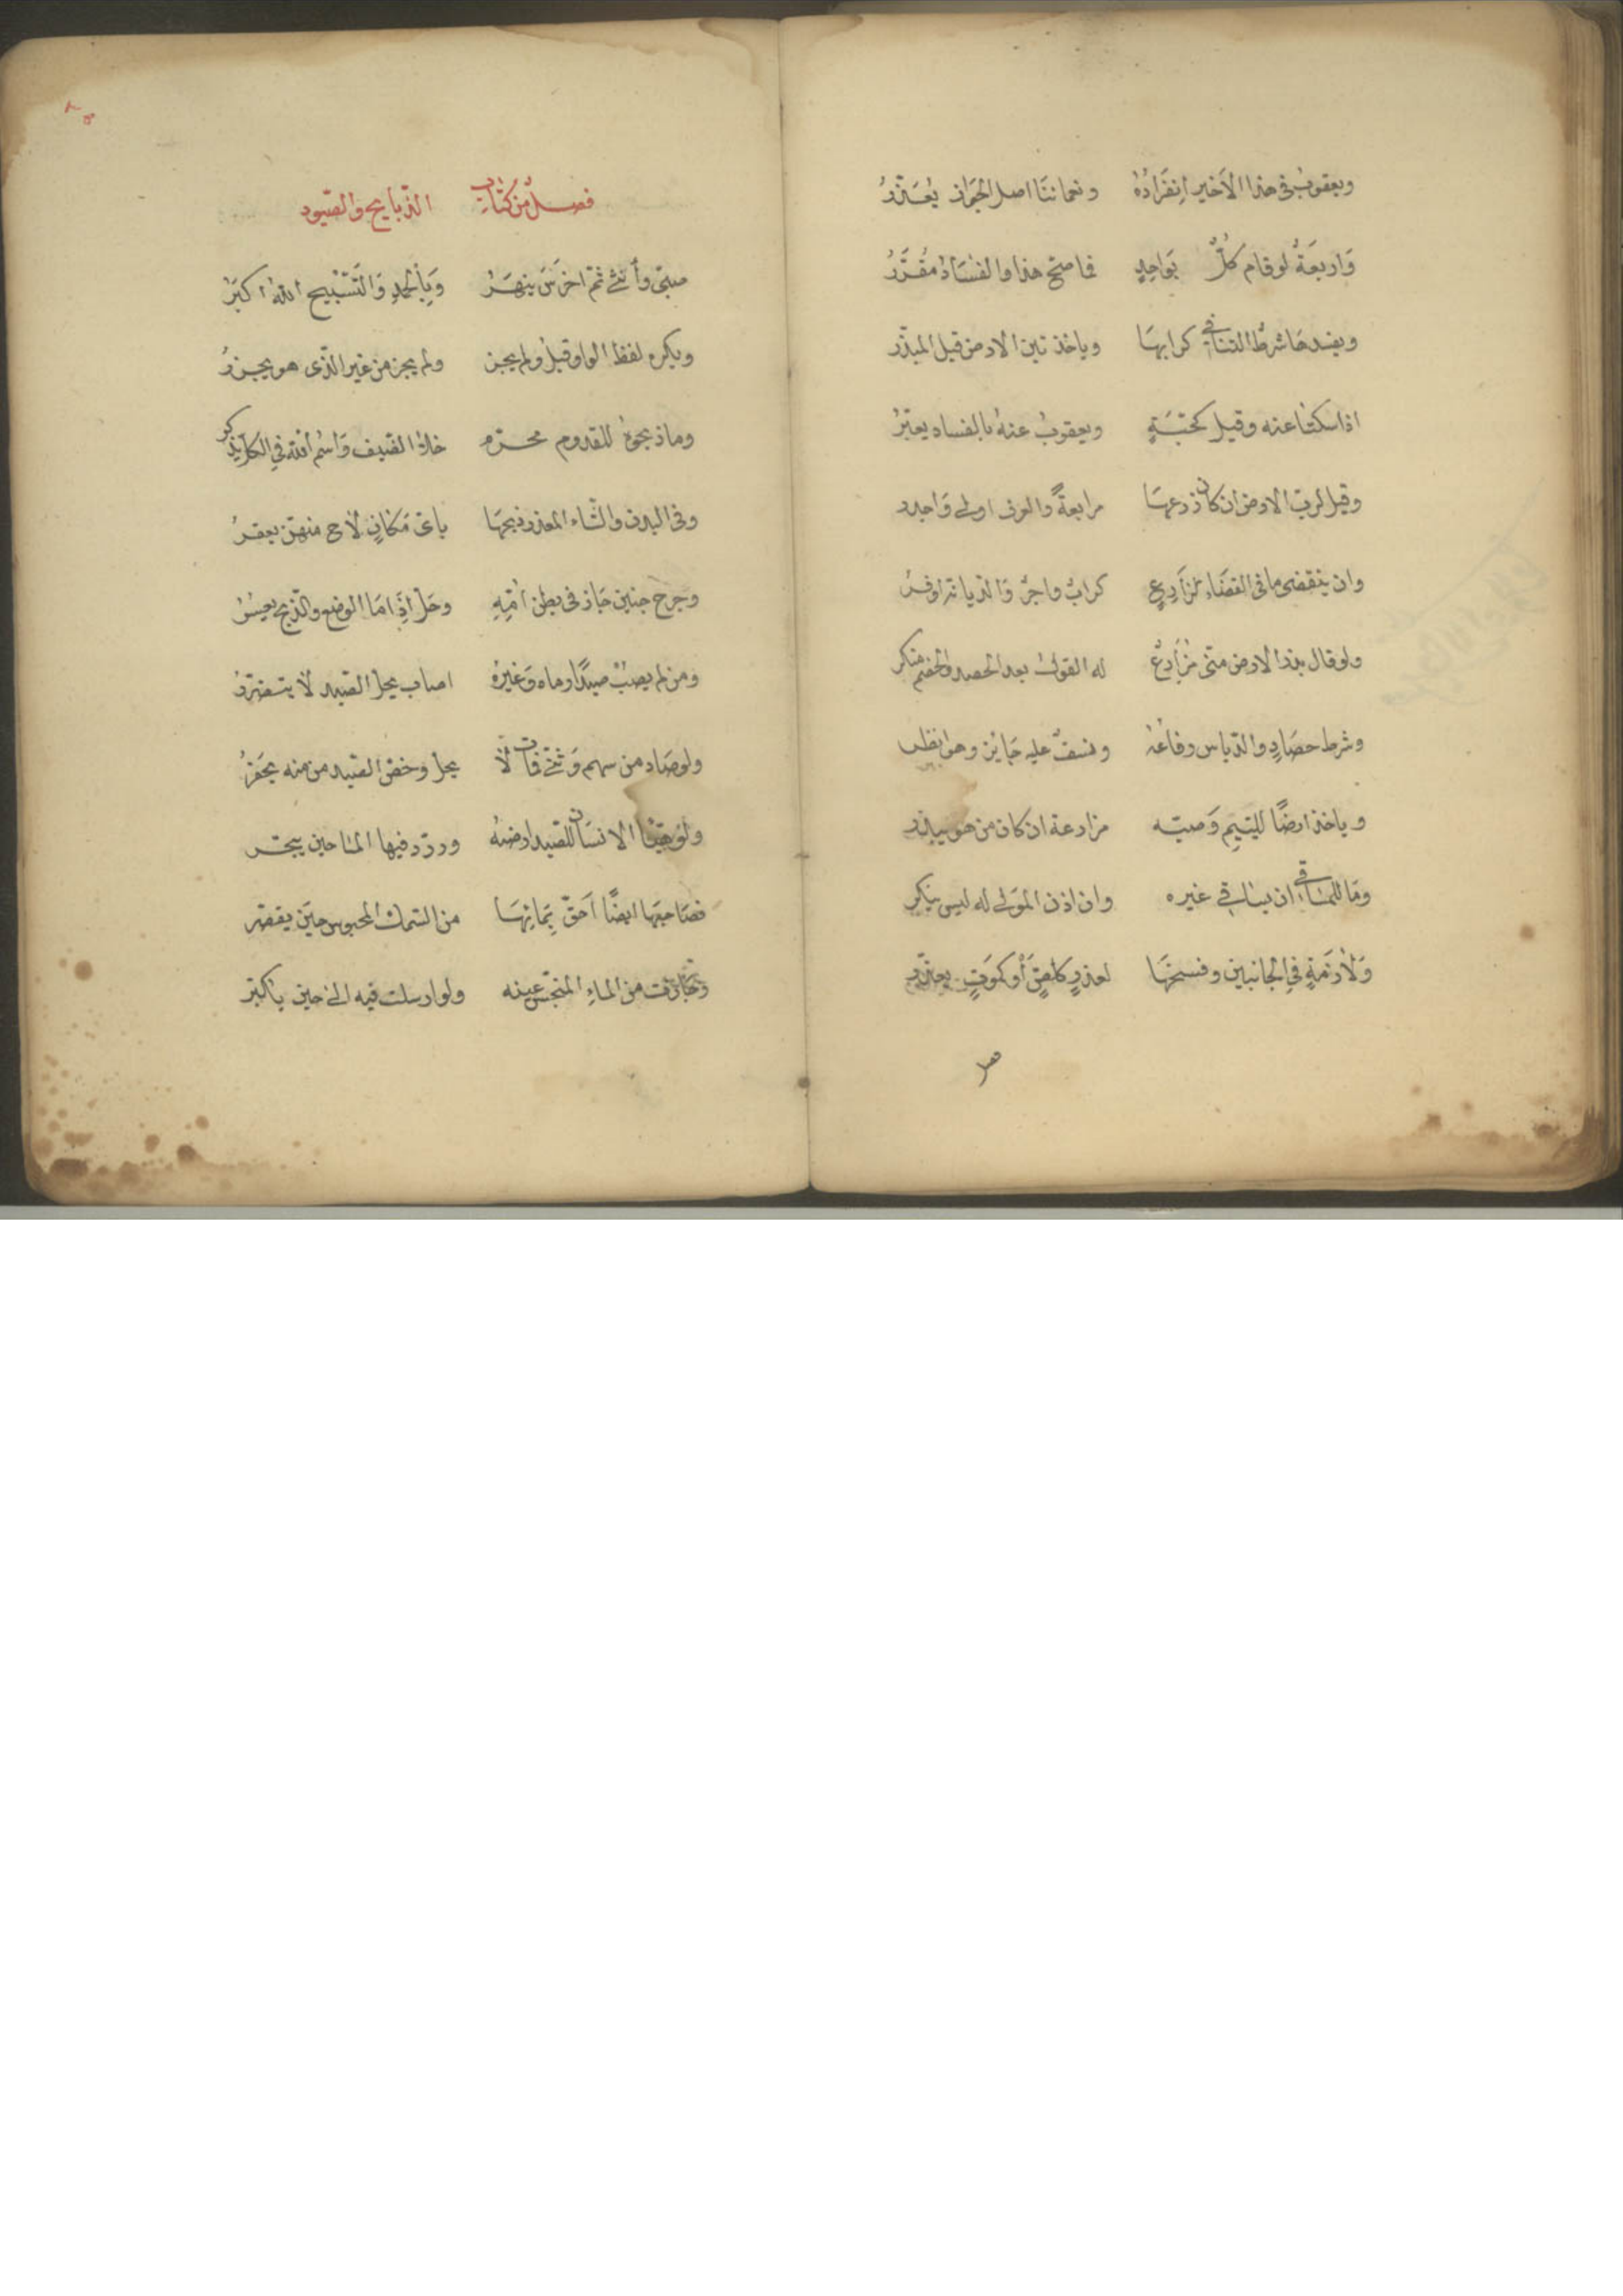 ويعقوب في هذا الأخير انفراده ونعماننا اصل الجواز يُعَذّرُ
وَاربعَةٌ لو قام كلٌّ بوَاحِدٍ فما صحّ هذا والفسَادُ مُقَرَّرُ
ويفسدها شرطُ التنافي كرابهَا وياخذ تبن الارض قيل المبذّر
اذا سكتا عنه وقيل كحَبّةٍ ويعقوبُ عنهُ بالفساد يعبّرُ
وقيل لربّ الارض ان كان زرعهَا مرابعةً والعرف اولى وَاجدر
وان ينقضى ما في القضَاء لمزَارعٍ كرابٌ واجرٌ وَالديانة اوفرُ
ولو قال بذا الارض متى مُزَارعٌ له القول بعد الحصد والخصم منكر
وشرط حصَادٍ والدّياس وفاعُهُ ونسفٌ عليه جَائز وهو انظر
وياخذ ارضًا لليتيم وَصيّه مزارعة ان كان من هو يبذر
وما للمساقي ان يساقي غيره وان اذن المَولى له ليس ينكر
وَلازمَةٍ في الجانبين وفسخهَا لعذرٍ كلصٍّ أو كموَتٍ يعذّر
فصلٌ من كتاب الذبايح والصّيود
صبىّ وأنثى ثم اخرَسَ ينهَرُ وَبِالحمدِ وَالتَسْبيح اللهُ اكبَرُ
ويكره لفظ الواو قيل ولم يجز ولم يجز من غير الذّى هو يجزرُ
وما ذبحوهُ للقدوم محرّم خلاف الضّيف وَاسْم الله في الكل يذكر
وفي البدن والشاء المعذر ذبحهَا باىّ مَكَانٍ لاح منهنّ يعقرُ
وجرح جنين جَاز في بطن اُمِّهِ وحَلّ اذَا مَا الوضع والذبح يعسُرُ
ومن لم يصبْ صيدًا رماه وَغيرهُ اصاب يحلّ الصّيد لا يتضرّرُ
ولو صَاد من سهم وَثنّى فان لا يحلّ وخصّ الصّيد من منه يحَفزُ
ولو هيّا الانسَان للصّيد ارضهُ وردّد فيها الما حين يبحّر
فصَاحبهَا ايضًا اَحقّ بمَا بهَا من السّمك المحبوس حين يقصّر
من الماءِ المنجّس عينه ولو ارسلت فيه الى حين ياكبر
صر